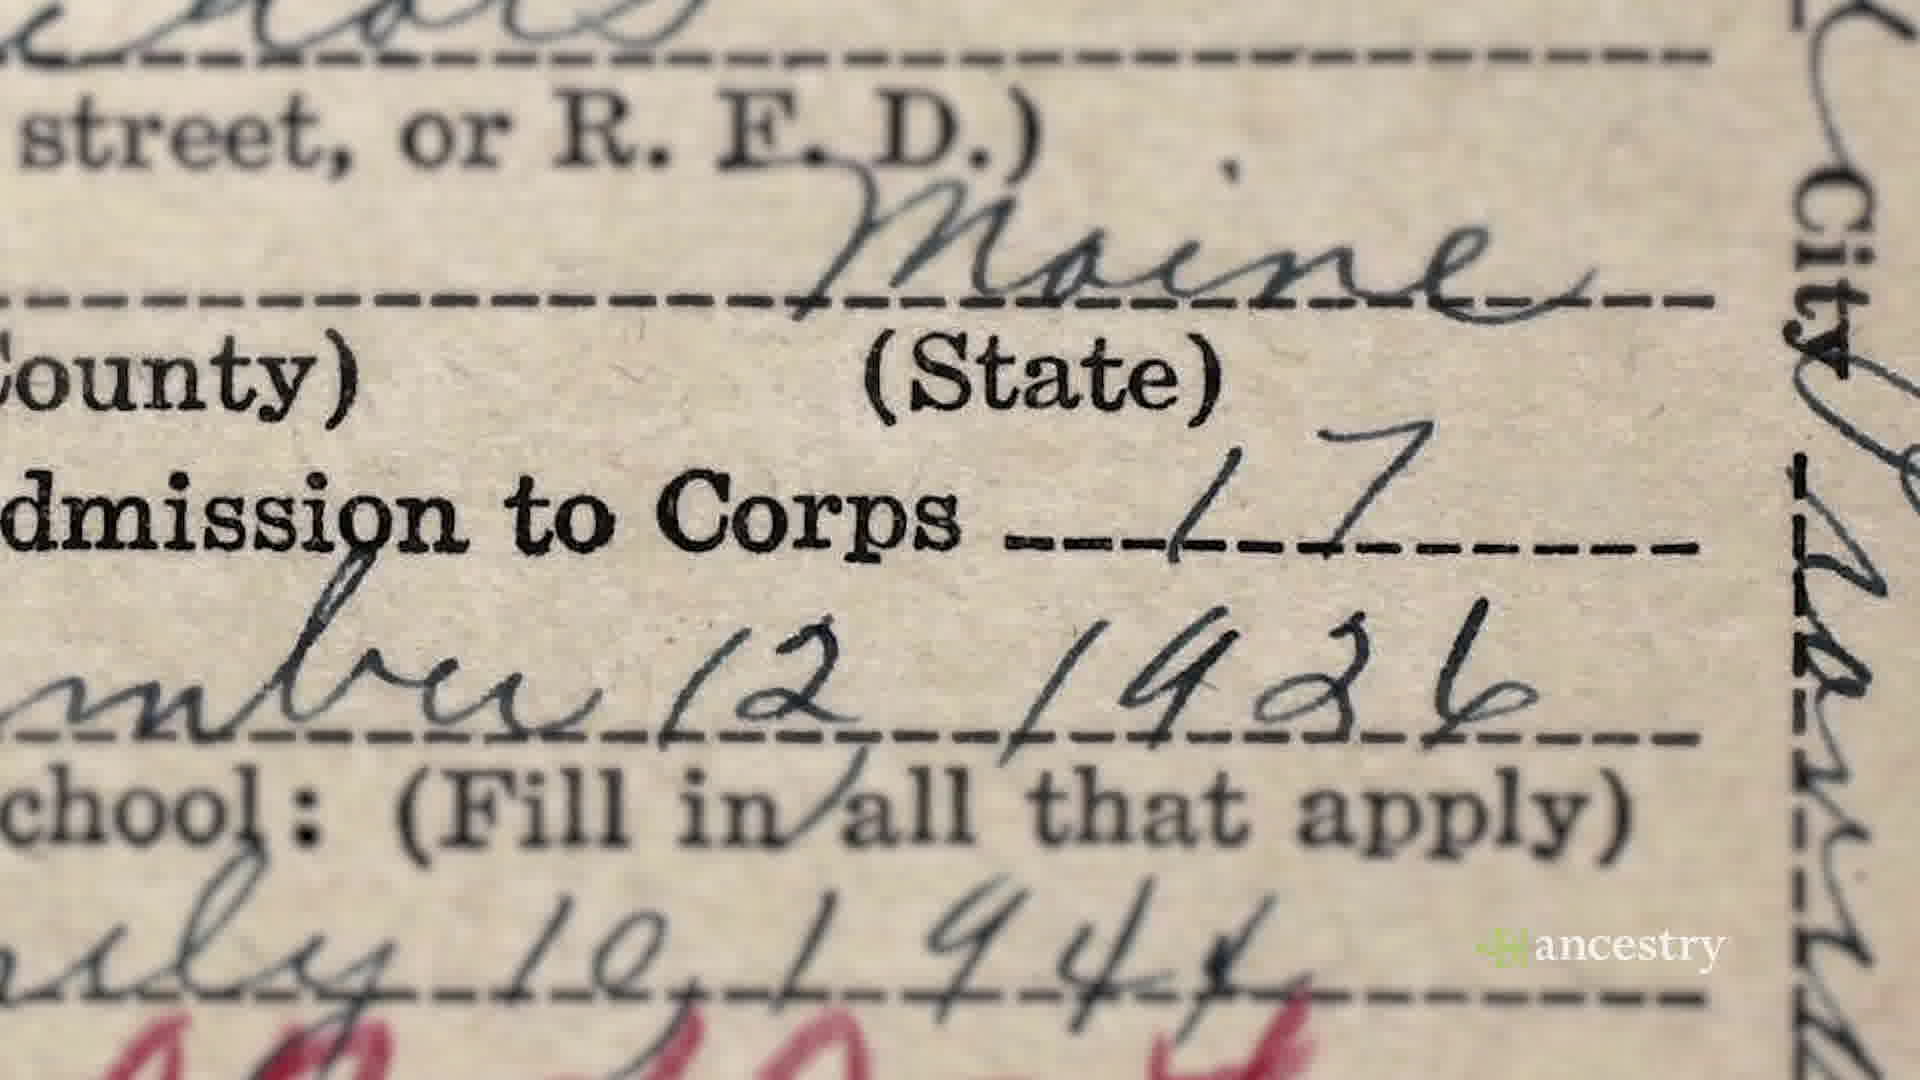 street, or R. F. D.)
Maine
County) (State)
dmission to Corps 17
mber 12 1926
chool: (Fill in all that apply)
10, 1944
City
ancestry